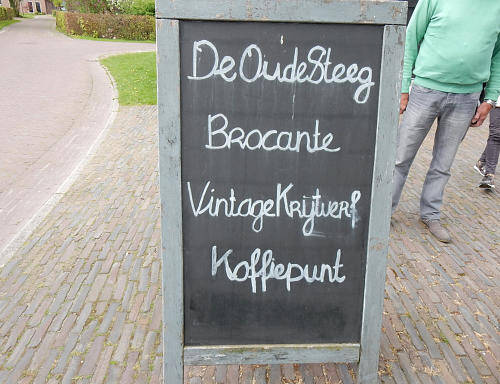 De Oude Steeg
Brocante
Vintage Krijtverf
Koffiepunt